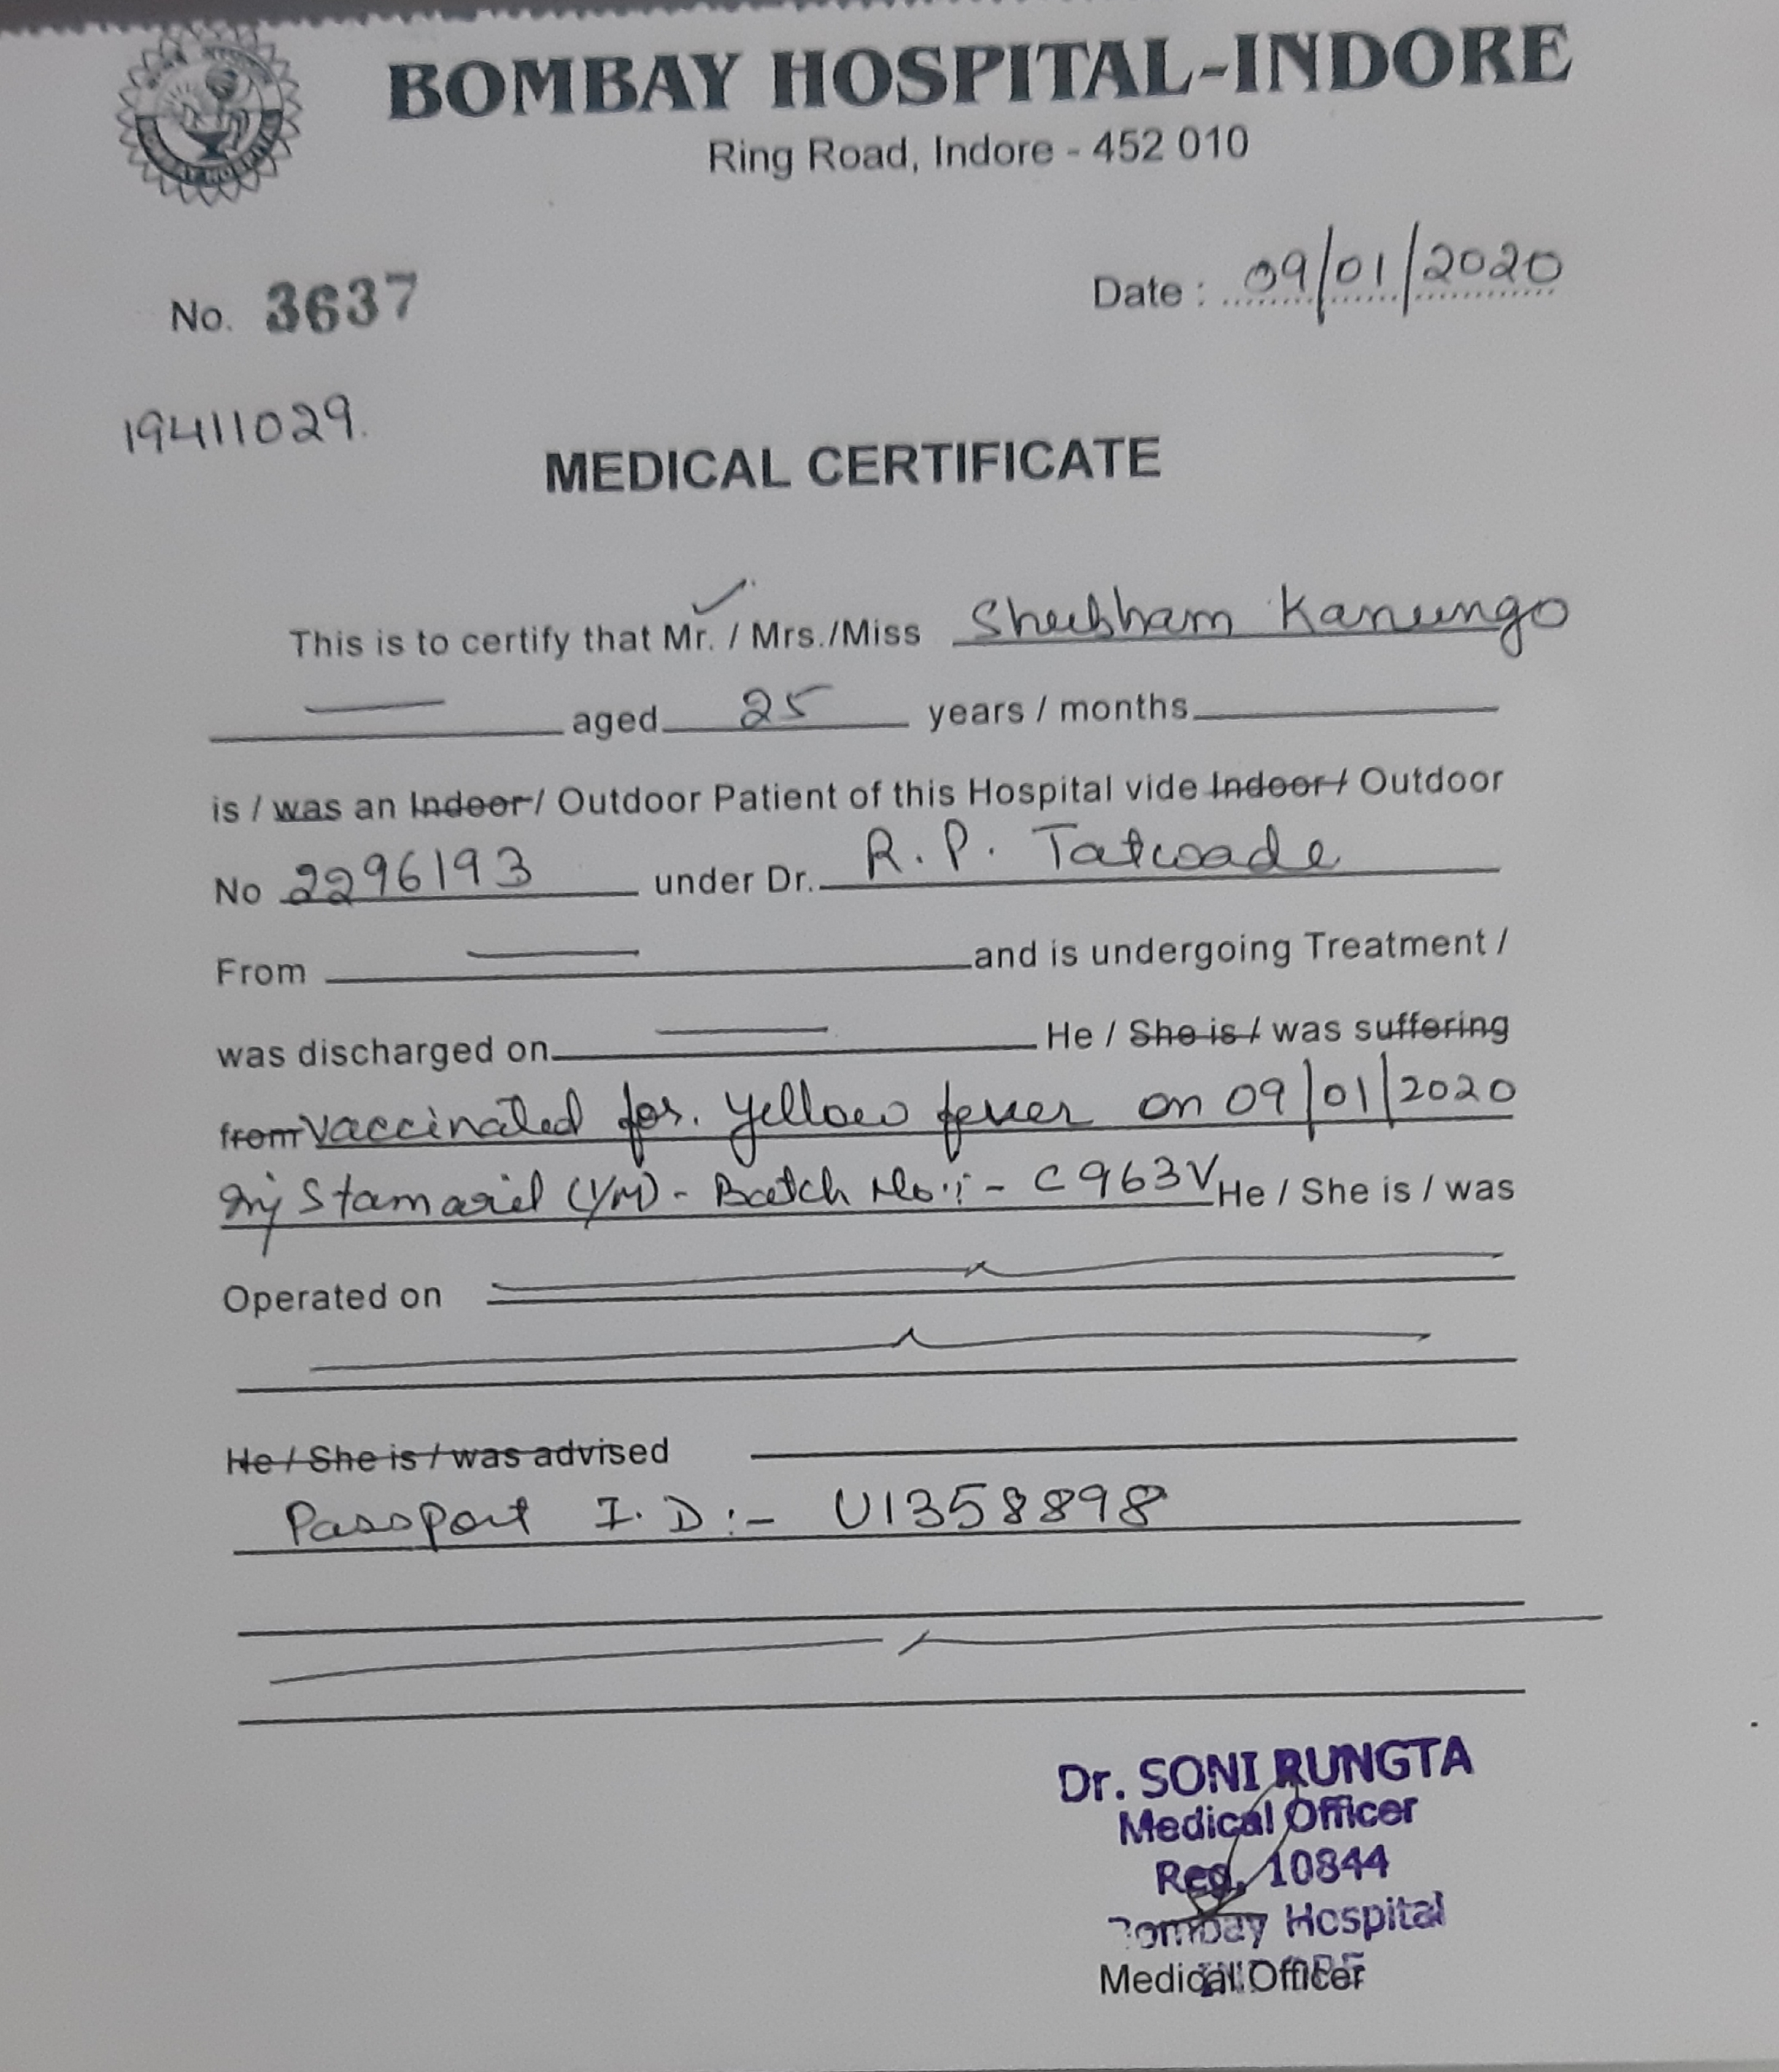 BOMBAY HOSPITAL-INDORE
Ring Road, Indore - 452 010
No. 3637
Date : 09/01/2020
19411029.
MEDICAL CERTIFICATE
This is to certify that Mr. / Mrs./Miss Shubham Kanungo
aged 25 years / months
is / was an Indoor / Outdoor Patient of this Hospital vide Indoor / Outdoor
No 2296193 under Dr. R.P. Tatwade
From and is undergoing Treatment /
was discharged on He / She is / was suffering
from vaccinated for. yellow fever on 09/01/2020
Inj Stamaril (I/M) - Batch No.:- C963V He / She is / was
Operated on
He / She is / was advised
Passport I.D:- U1358898
Dr. SONI RUNGTA
Medical Officer
Reg. 10844
Bombay Hospital
Medical Officer